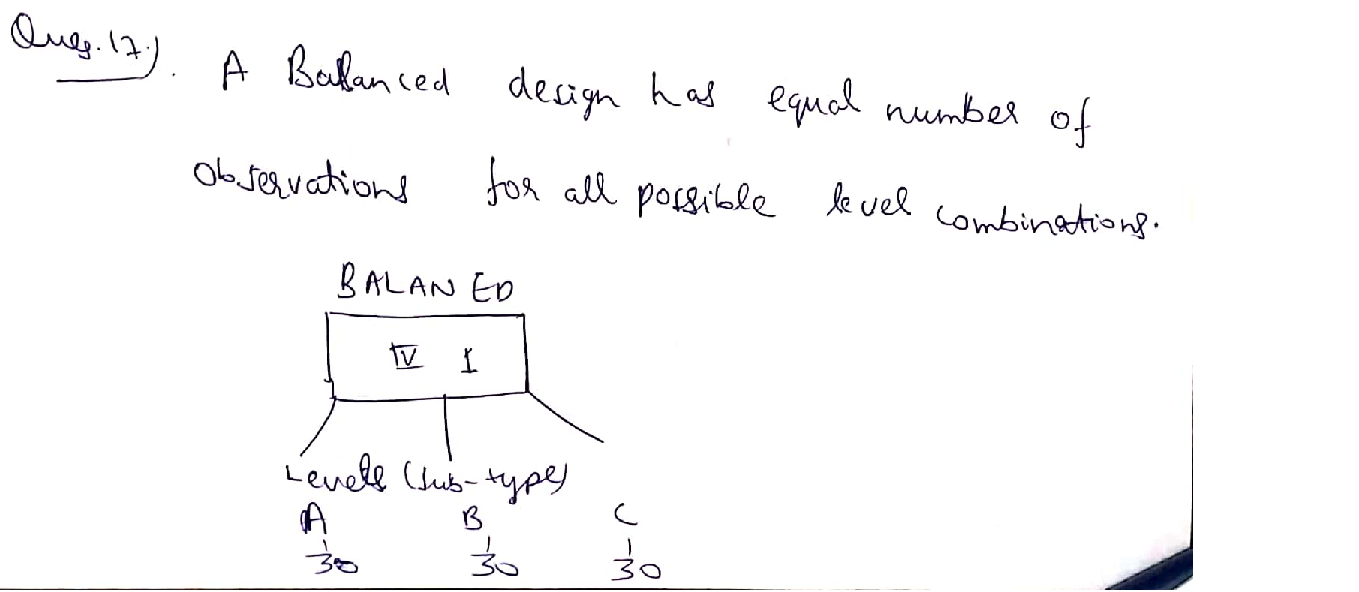 Ques.17.).
A Balanced design has equal number of
observations for all possible level combinations.
BALAN ED
IV I
Levels (sub-type)
A B C
30 30 30